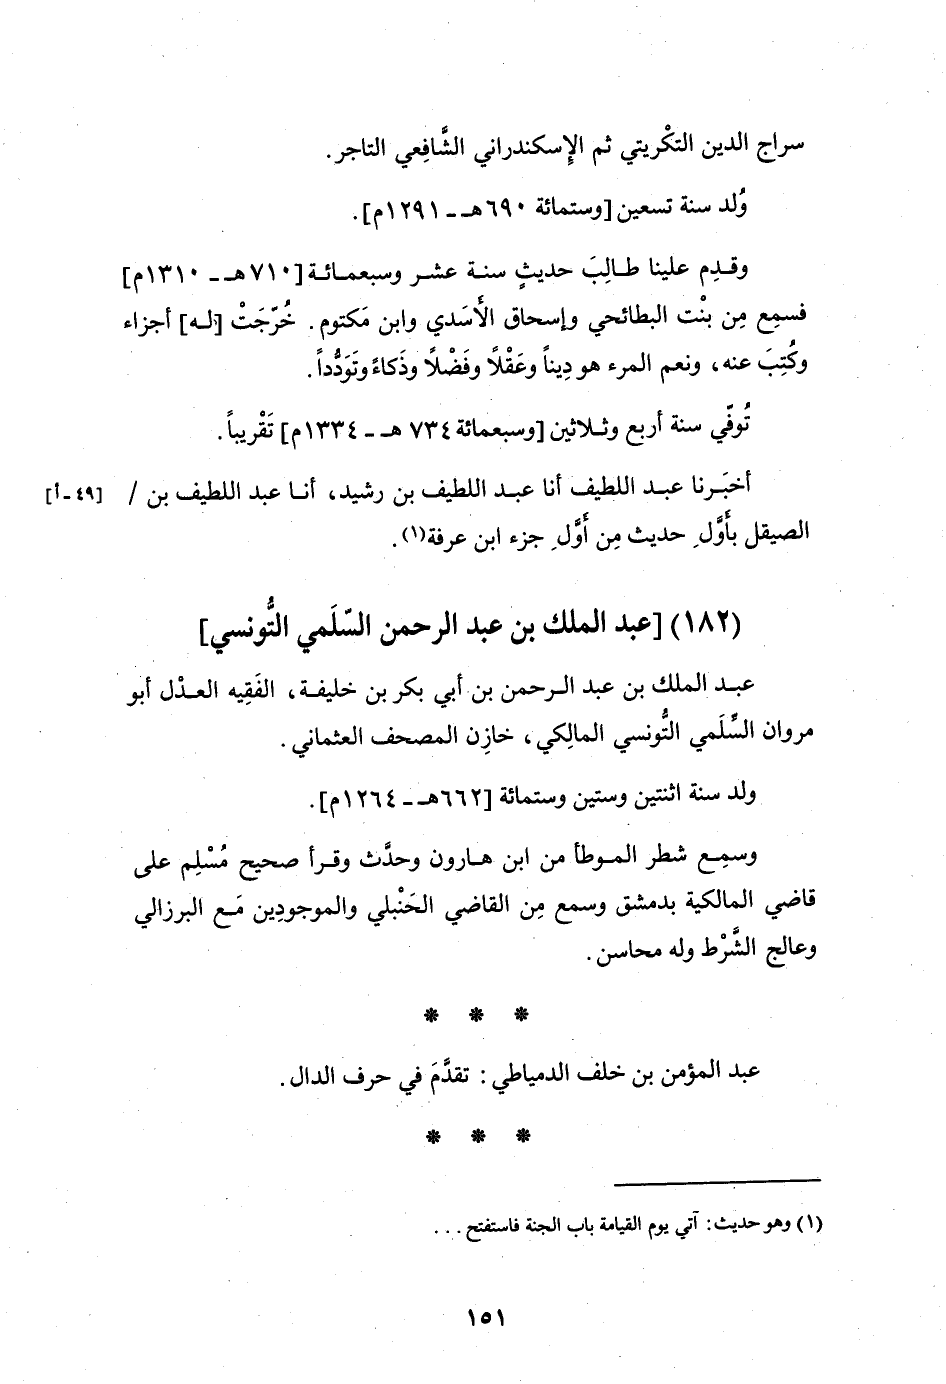 سراج الدين التكْريتي ثم الإسكندراني الشَّافِعي التاجر.
وُلد سنة تسعين [وستمائة ٦٩٠هـ ـ ١٢٩١م].
وقدِم علينا طالِبَ حديثٍ سنة عشر وسبعمائة [٧١٠هـ ـ ١٣١٠م]
فسمِع مِن بنْت البطائحي وإسحاق الأَسَدي وابن مَكتوم. خُرّجَتْ [له] أجزاء
وكُتِبَ عنه، ونعم المرء هو دِيناً وعَقْلاً وفَضْلاً وذَكاءً وتَوَدُّداً.
تُوفّي سنة أربع وثلاثين [وسبعمائة ٧٣٤ هـ ـ ١٣٣٤م] تَقْريباً.
أخبَرنا عبد اللطيف أنا عبد اللطيف بن رشيد، أنا عبد اللطيف بن / [٤٩ ـ أ]
الصيقل بأَوَّلِ حديث مِن أَوَّلِ جزء ابن عرفة(١).
(١٨٢) [عبد الملك بن عبد الرحمن السّلَمي التُّونسي]
عبد الملك بن عبد الرحمن بن أبي بكر بن خليفة، الفَقِيه العدْل أبو
مروان السِّلَمي التُّونسي المالِكي، خازِن المصحف العثماني.
ولد سنة اثنتين وستين وستمائة [٦٦٢هـ ـ ١٢٦٤م].
وسمِع شطر الموطأ من ابن هارون وحدَّث وقرأ صحيح مُسْلِم على
قاضي المالكية بدمشق وسمع مِن القاضي الحَنْبلي والموجودِين مَع البرزالي
وعالج الشَّرْط وله محاسن.
* * *
عبد المؤمن بن خلف الدمياطي: تقدَّمَ في حرف الدال.
* * *
(١) وهو حديث: آتي يوم القيامة باب الجنة فاستفتح . . .
١٥١